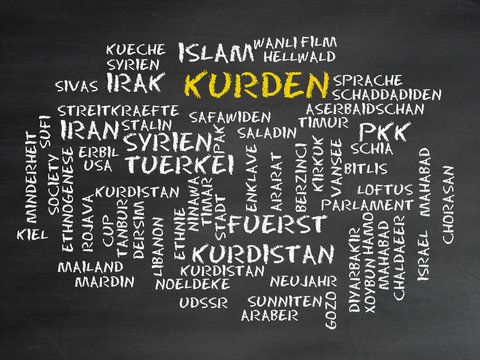 KUECHE
ISLAM
WANLI FILM
HELLWALD
SYRIEN
SIVAS
IRAK
KURDEN
SPRACHE
SCHADDADIDEN
STREITKRAEFTE
SAFAWIDEN
ASERBAIDSCHAN
TIMUR
IRAN
STALIN
SALADIN
PKK
SYRIEN
SCHIA
ERBIL
USA
TUERKEI
BITLIS
MINDERHEIT
SUFI
SOCIETY
ETHNOGENESE
IPAK
ENKLAVE
ARARAT
BERZINCI
KIRKUK
VANSEE
KURDISTAN
LOFTUS
PARLAMENT
MAHABAD
CHORASAN
KIEL
ROJAVA
CUP
TANBUR
DERSIM
LIBANON
ETHNIE
NINAWA
TIMAR
STADT
FUERST
KURDISTAN
DIYARBAKIR
XOYBUN HAMO
MAHABAD
CHALDAEER
ISRAEL
MAILAND
MARDIN
KURDISTAN
NOELDEKE
NEUJAHR
UDSSR
SUNNITEN
ARABER
GOZO